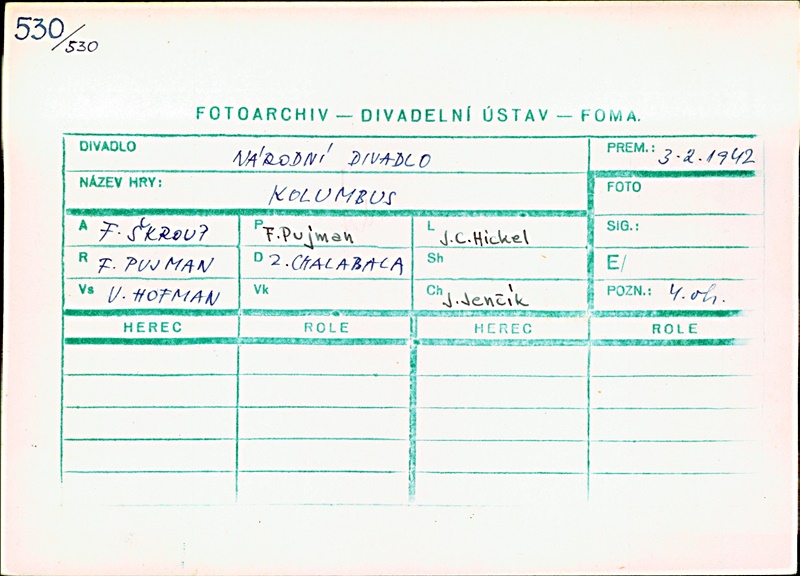 530/530
FOTOARCHIV — DIVADELNÍ ÚSTAV — FOMA.
DIVADLO NÁRODNÍ DIVADLO PREM.: 3.2.1942
NÁZEV HRY: KOLUMBUS FOTO
A F. ŠKROUP P F.Pujman L J.C.Hickel SIG.:
R F. PUJMAN D Z. CHALABALA Sh E/
Vs V. HOFMAN Vk Ch J.Jenčík POZN.: 4. oh.
HEREC ROLE HEREC ROLE